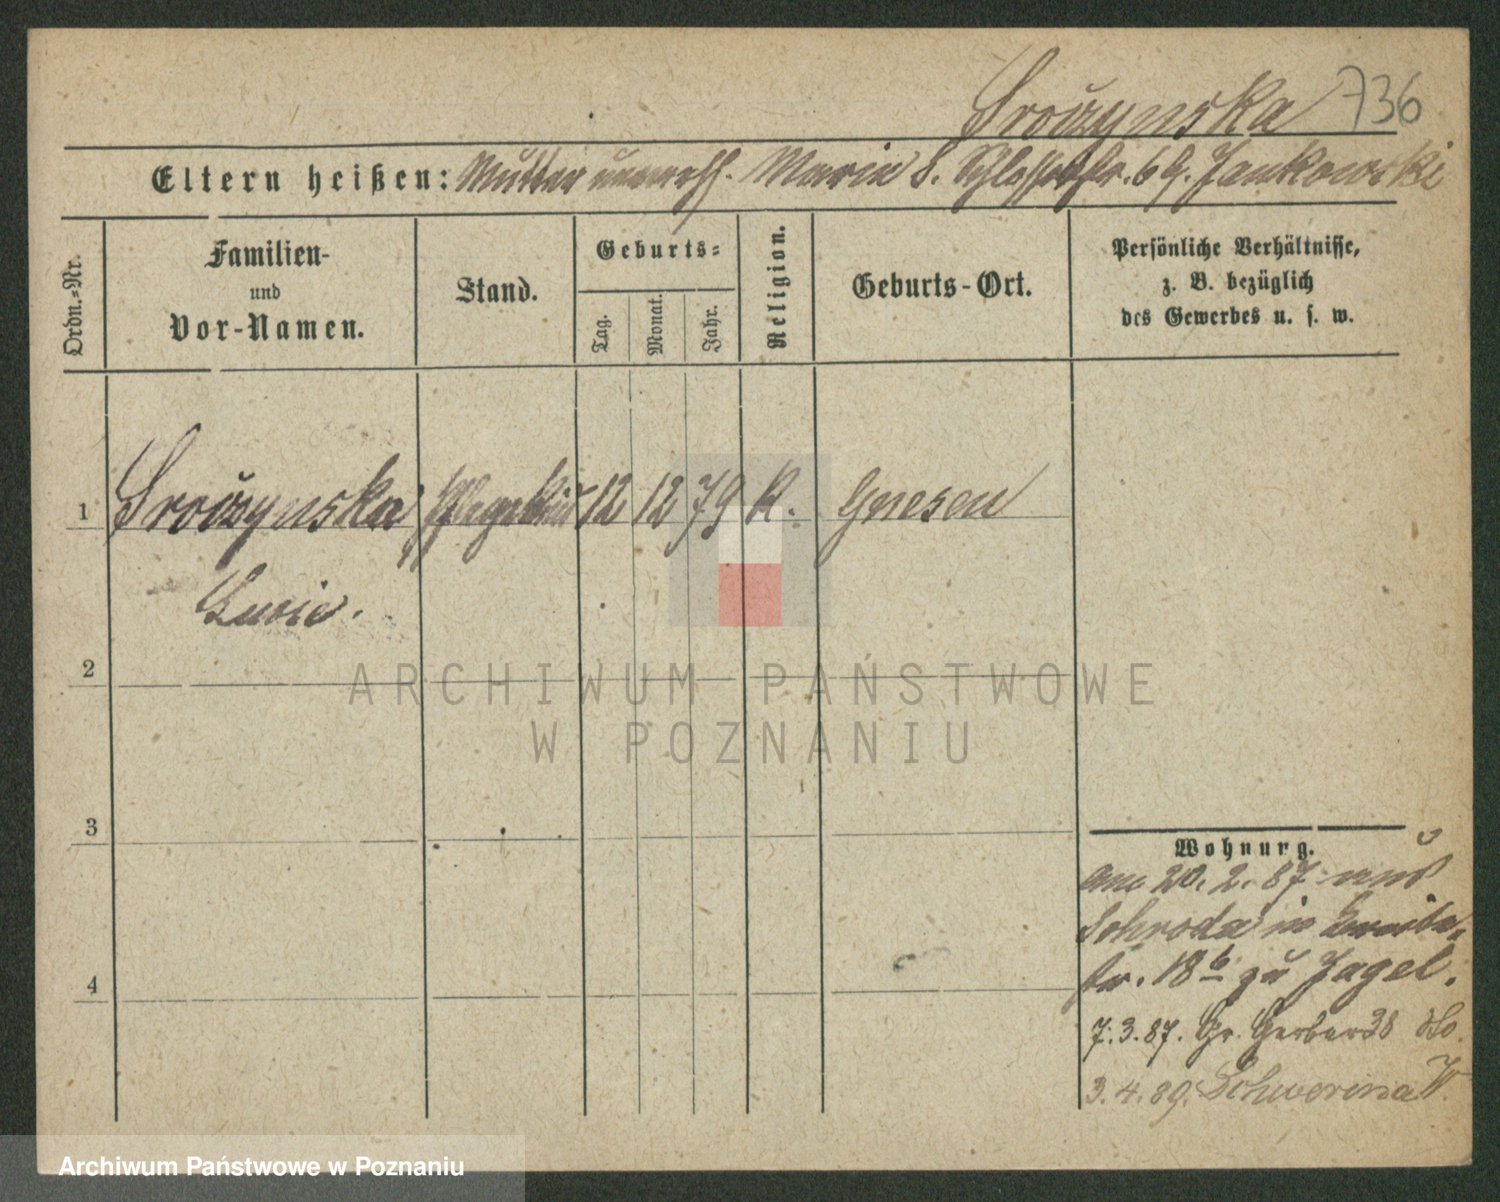 Sroczynska 736
Eltern heißen: Mutter unvereh. Maria S. Schloßstr. 6 b. Jankowski
Ordn.-Nr.
Familien-
und
Vor-Namen.
Stand.
Geburts-
Tag.
Monat.
Jahr.
Religion.
Geburts-Ort.
Persönliche Verhältnisse,
z. B. bezüglich
des Gewerbes u. s. w.
1 Sroczynska Pflegekind 12 12 79 K. Gnesen
Lucie.
2
3
4
Wohnung.
am 20. 2. 87 aus
Schroda in Breite-
str. 18 b zu Jagel.
7. 3. 87. Gr. Gerber 38 dto.
3. 4. 89. Schwerin a W.
ARCHIWUM PAŃSTWOWE
W POZNANIU
Archiwum Państwowe w Poznaniu